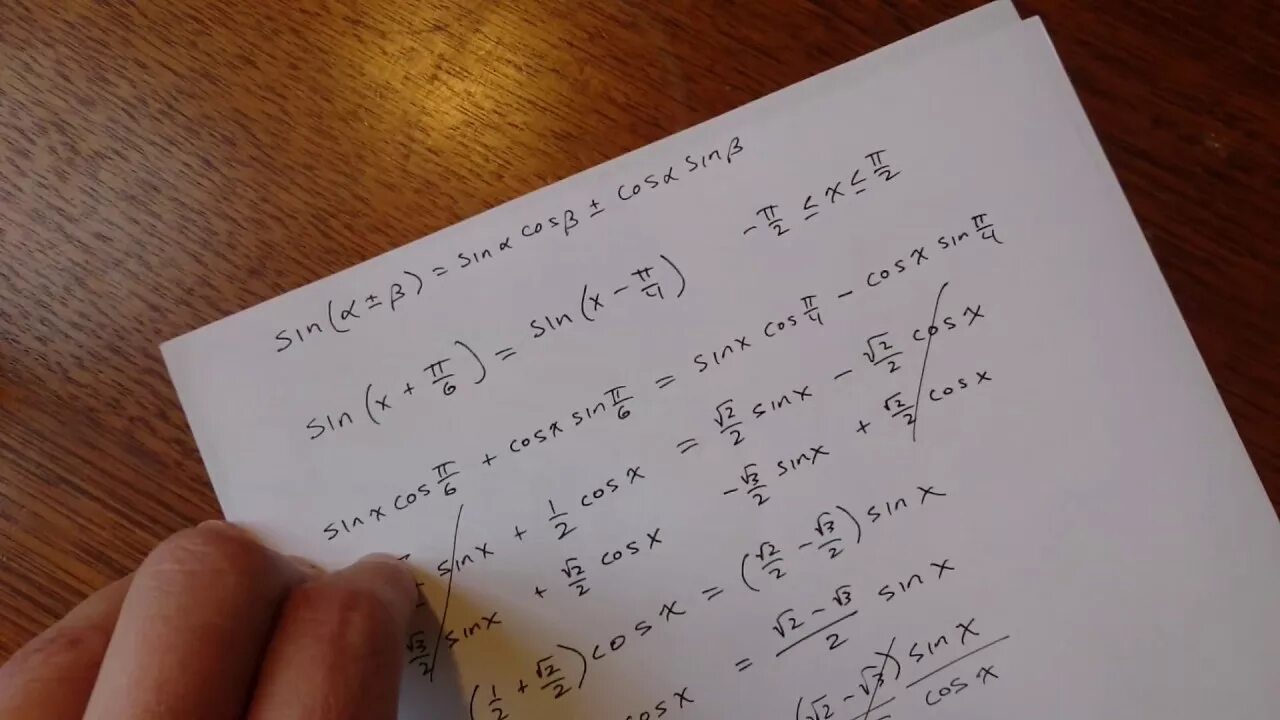 sin(α ± β) = sinα cosβ ± cosα sinβ
sin(x + π/6) = sin(x − π/4)   −π/2 ≤ x ≤ π/2
sinx cos π/6 + cosx sin π/6 = sinx cos π/4 − cosx sin π/4
sinx + 1/2 cosx = √2/2 sinx − √2/2 cosx
√3/2 sinx + √2/2 cosx   −√3/2 sinx + √2/2 cosx
(1/2 + √2/2) cosx = (√2/2 − √3/2) sinx
cosx = (√2 − √3)/2 sinx
(√2 − √3) sinx/cosx